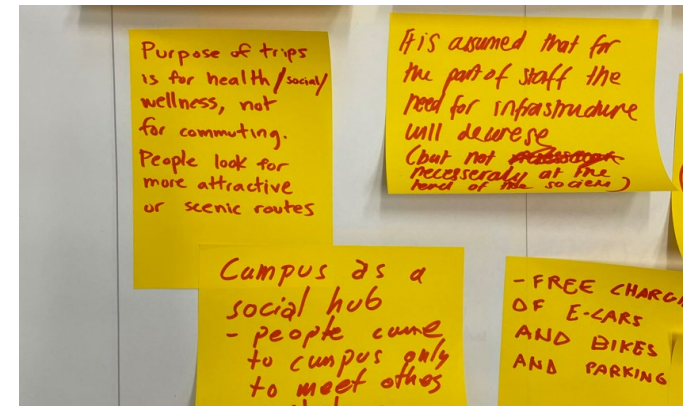 Purpose of trips
is for health/social/
wellness, not
for commuting.
People look for
more attractive
or scenic routes
It is assumed that for
the part of staff the
need for infrastructure
will decrese
(but not
necesseraly at the
level of the society)
Campus as a
social hub
- people come
to campus only
to meet others
- FREE CHARG
OF E-CARS
AND BIKES
AND PARKING